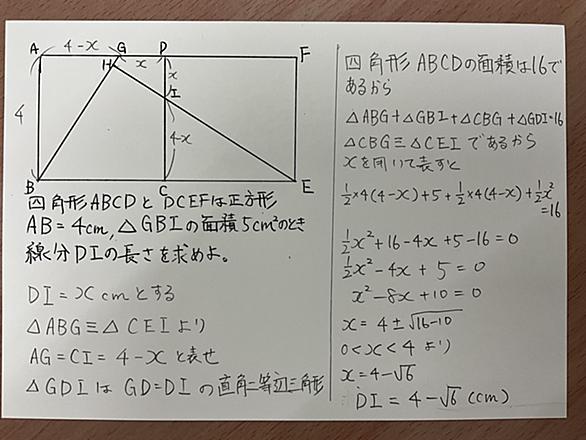 A 4-x G D F
H x x
I
4 4-x
B C E
四角形ABCDとDCEFは正方形
AB=4cm,△GBIの面積5cm²のとき
線分DIの長さを求めよ。
DI=xcmとする
△ABG≡△CEIより
AG=CI=4-xと表せ
△GDIはGD=DIの直角二等辺三角形
四角形ABCDの面積は16で
あるから
△ABG+△GBI+△CBG+△GDI=16
△CBG≡△CEIであるから
xを用いて表すと
1/2×4(4-x)+5+1/2×4(4-x)+1/2x²
=16
1/2x²+16-4x+5-16=0
1/2x²-4x+5=0
x²-8x+10=0
x=4±√16-10
0<x<4より
x=4-√6
DI=4-√6(cm)